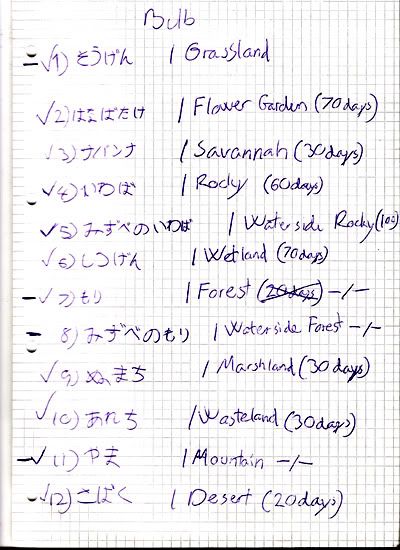 Bulb
√1) そうげん / Grassland
√2) はなばたけ / Flower Garden (70 days)
√3) サバンナ / Savannah (30 days)
√4) いわば / Rocky (60 days)
√5) みずべのいわば / Waterside Rocky (100)
√6) しつげん / Wetland (70 days)
- √7) もり / Forest (20 days) -/-
- 8) みずべのもり / Waterside Forest -/-
√9) ぬまち / Marshland (30 days)
√10) あれち / Wasteland (30 days)
-√11) やま / Mountain -/-
√12) さばく / Desert (20 days)